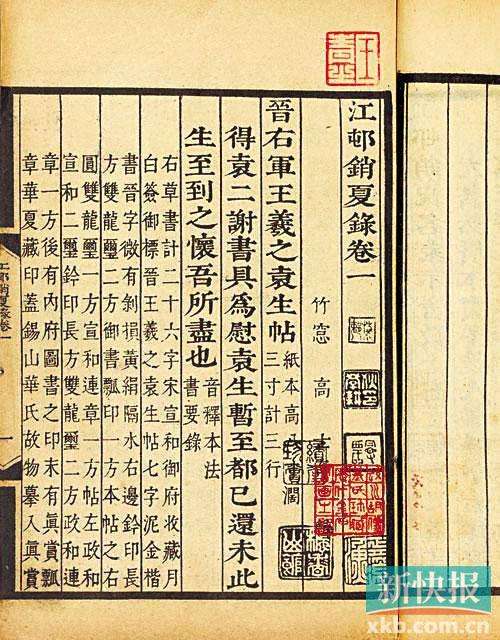 江邨銷夏錄卷一
竹窻 高
晉右軍王羲之袁生帖 紙本高
三寸計三行
得袁二謝書具爲慰袁生暫至都已還未此
生至到之懷吾所盡也 音釋本法
書要錄
右草書計二十六字宋宣和御府收藏月
白簽御標晉王羲之袁生帖七字泥金楷
書晉字微有剝損黃絹隔水右邊鈐印長
方雙龍璽二方御書瓢印一方本帖之右
圓雙龍璽一方宣和連章一方帖左政和
宣和二璽鈐印長方雙龍璽二方政和連
章一方後有內府圖書之印末有眞賞瓢
章華夏藏印蓋錫山華氏故物摹入眞賞
江邨銷夏錄卷一
一
新快报
xkb.com.cn